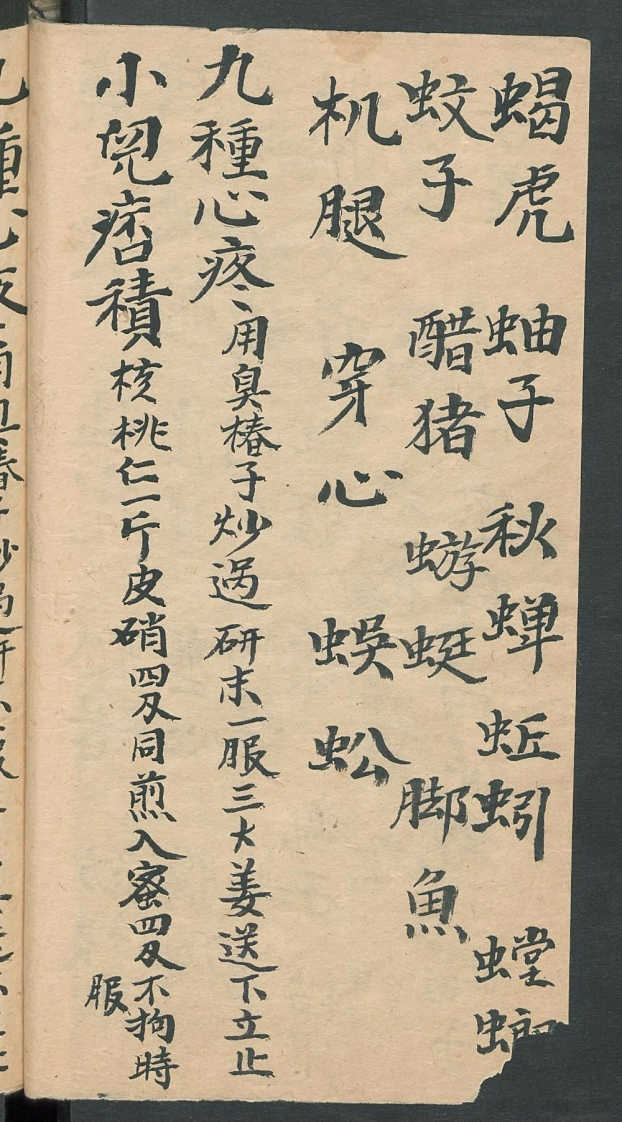 蝎虎 蚰子 秋蝉 蚯蚓 螳螂
蚊子 醋猪 蝣蜓 脚魚
机腿 穿心 蜈蚣
九種心疼、用臭椿子炒过研末一服三大姜送下立止
小児痞積核桃仁一斤皮硝四及同煎入蜜四及不拘時
服